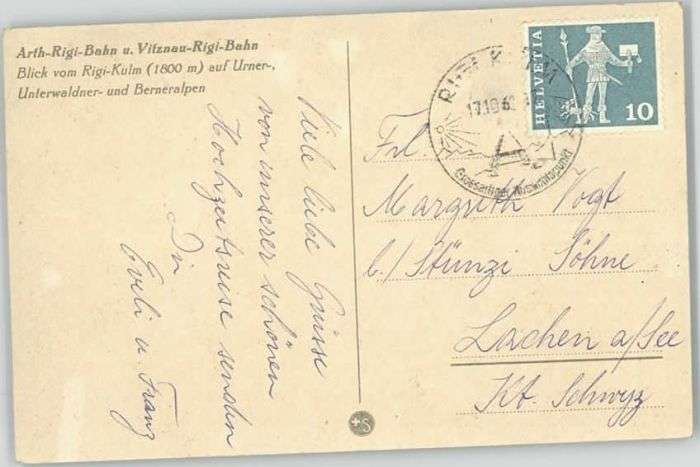 Arth-Rigi-Bahn u. Vitznau-Rigi-Bahn
Blick vom Rigi-Kulm (1800 m) auf Urner-,
Unterwaldner- und Berneralpen
Viele liebe Grüsse
von unserer schönen
Hochzeitsreise senden
Dir
Eveli u. Franz
RIGI KULM
17.10.6
Grossartiger Aussichtspunkt
HELVETIA
10
Frl.
Margrith Vogt
b./ Stünzi Söhne
Lachen a/See
Kt. Schwyz
+S